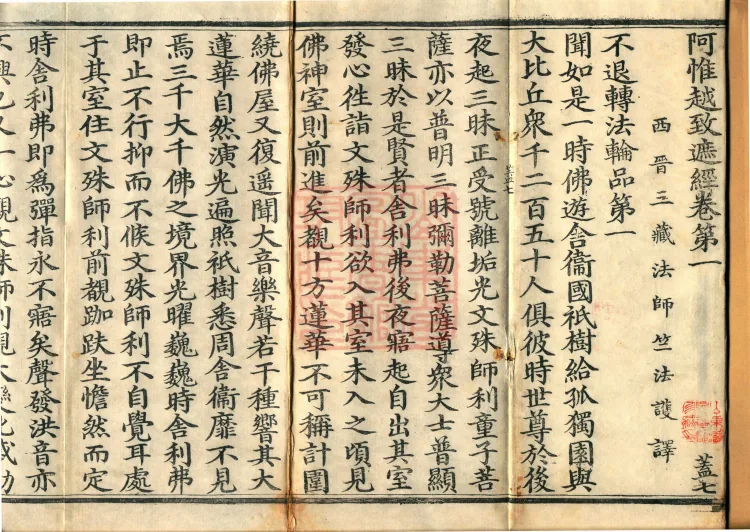 阿惟越致遮經卷第一
西晉三藏法師竺法護譯
蓋七
不退轉法輪品第一
聞如是一時佛遊舍衞國祇樹給孤獨園與
大比丘衆千二百五十人俱彼時世尊於後
夜起三昧正受號離垢光文殊師利童子菩
薩亦以普明三昧彌勒菩薩導衆大士普顯
三昧於是賢者舍利弗後夜寤起自出其室
發心徃詣文殊師利欲入其室未入之頃見
佛神室則前進矣覩十方蓮華不可稱計圍
繞佛屋又復遥聞大音樂聲若干種響其大
蓮華自然演光遍照祇樹悉周舍衞靡不見
焉三千大千佛之境界光曜巍巍時舍利弗
即止不行抑而不候文殊師利不自覺耳處
于其室住文殊師利前覩跏趺坐憺然而定
時舍利弗即爲彈指永不寤矣聲發洪音亦
蓋七